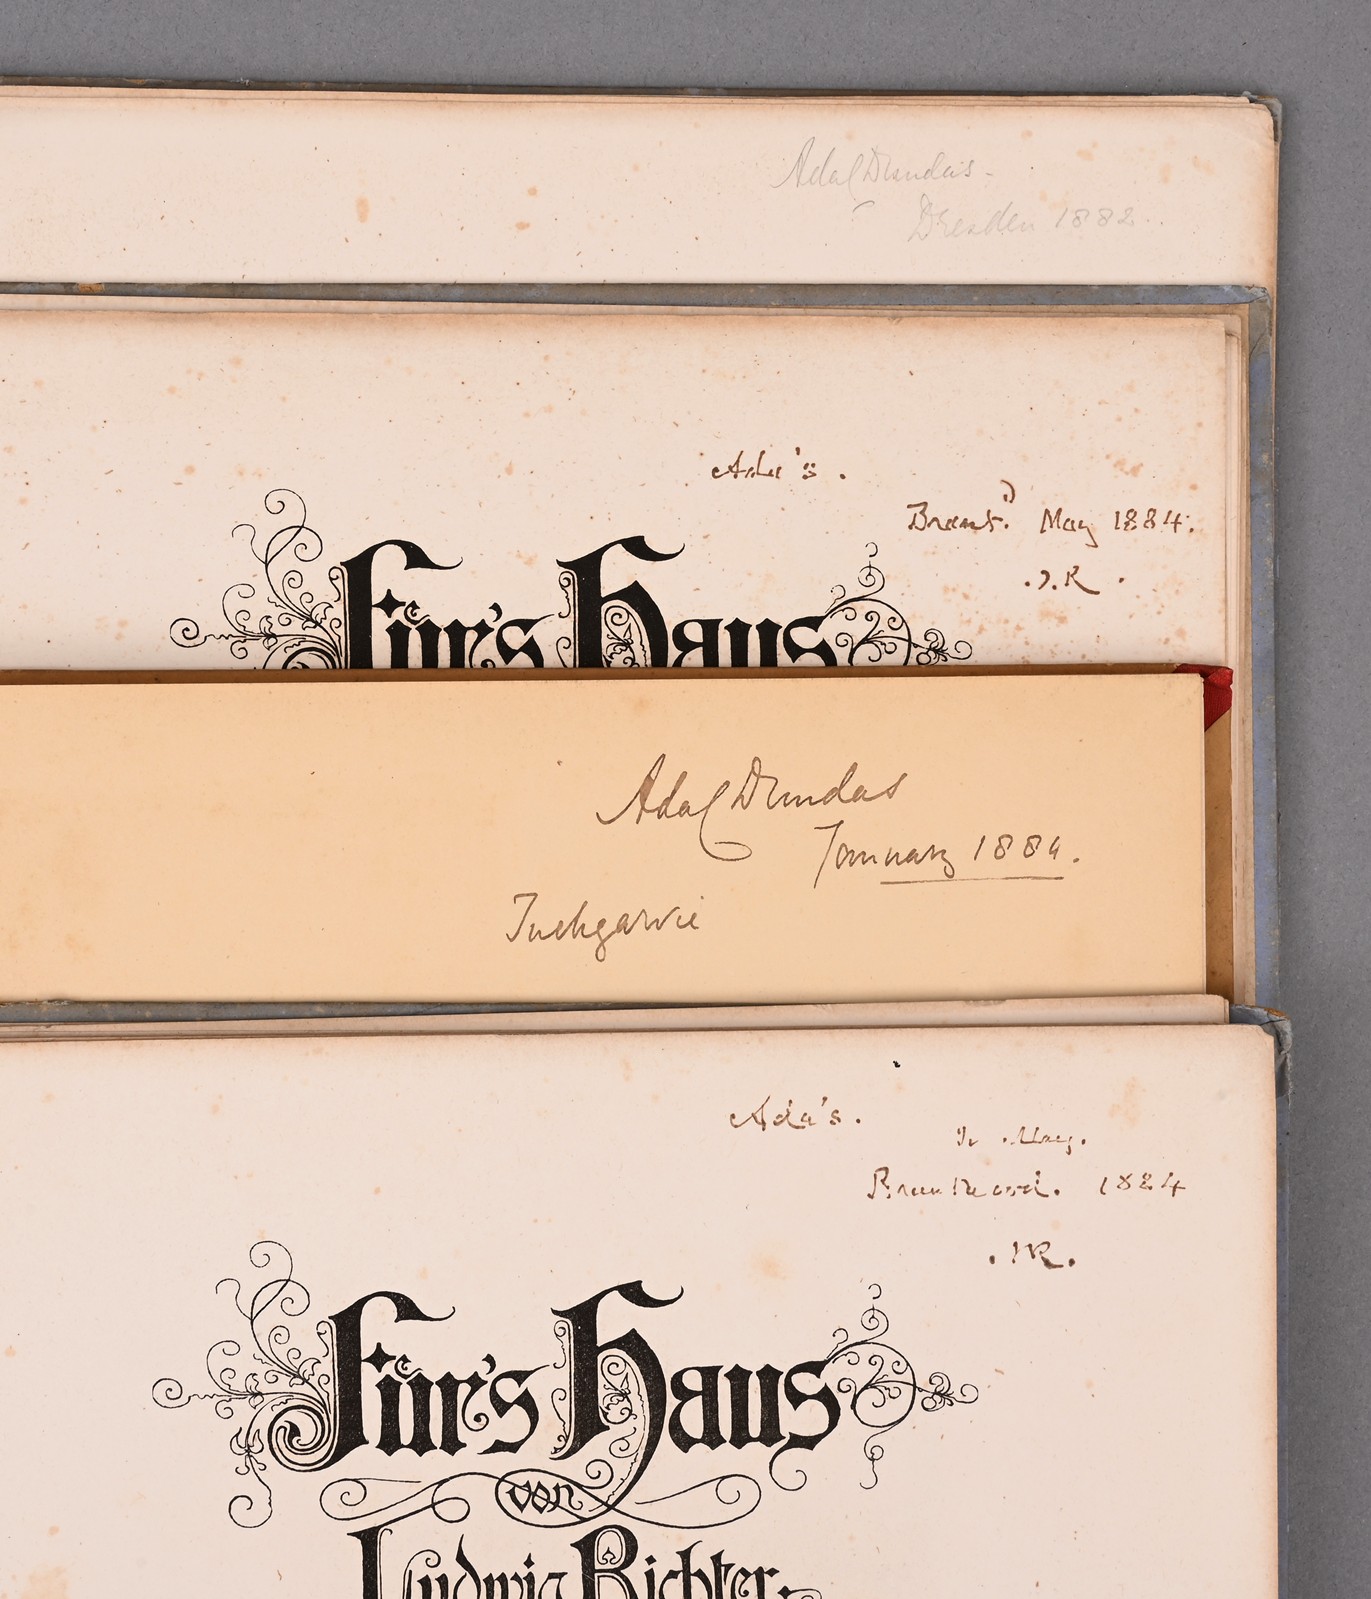 Ada Dundas -
Dresden 1882.
Ada's.
Brantd. May 1884.
.J.R.
Für's Haus
Ada Dundas
January 1884.
Inchgarvie
Ada's.
In May.
Brantwood. 1884
.JR.
Für's Haus
von
Ludwig Richter.